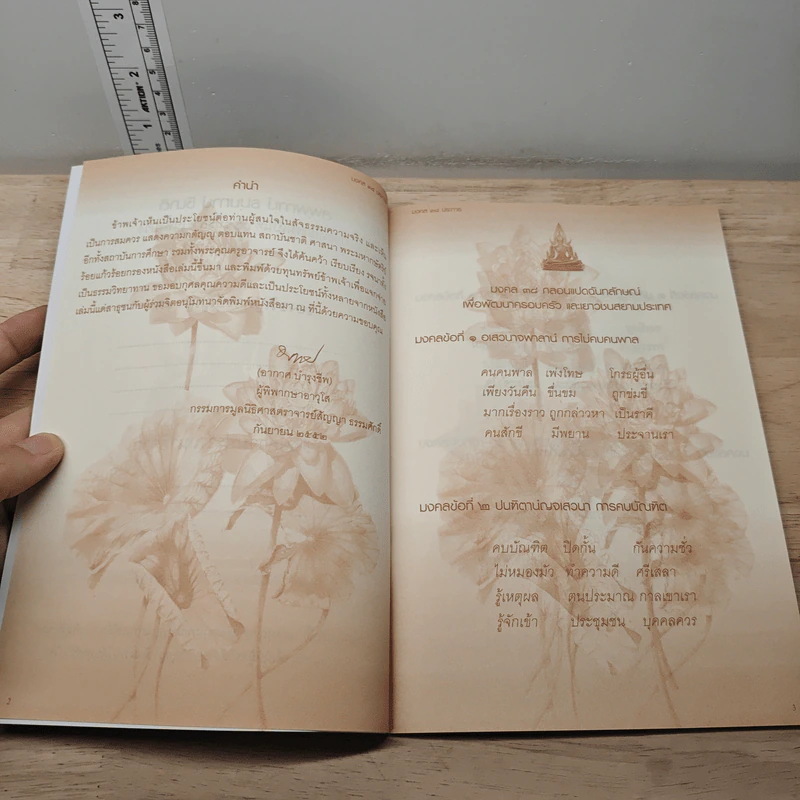 คำนำ
ข้าพเจ้าเห็นเป็นประโยชน์ต่อท่านผู้สนใจในสัจธรรมความจริง และเห็น
เป็นการสมควร แสดงความกตัญญู ตอบแทน สถาบันชาติ ศาสนา พระมหากษัตริย์
อีกทั้งสถาบันการศึกษา รวมทั้งพระคุณครูอาจารย์ จึงได้ค้นคว้า เรียบเรียง รจนาขึ้น
ร้อยแก้วร้อยกรองหนังสือเล่มนี้ขึ้นมา และพิมพ์ด้วยทุนทรัพย์ข้าพเจ้าเพื่อแจกจ่าย
เป็นธรรมวิทยาทาน ขอมอบกุศลคุณความดีและเป็นประโยชน์ทั้งหลายจากหนังสือ
เล่มนี้แด่สาธุชนกับผู้ร่วมจิตอนุโมทนาจัดพิมพ์หนังสือมา ณ ที่นี้ด้วยความขอบคุณ
(อากาศ บำรุงชีพ)
ผู้พิพากษาอาวุโส
กรรมการมูลนิธิศาสตราจารย์สัญญา ธรรมศักดิ์
กันยายน ๒๕๕๒
2
มงคล ๓๘ กลอนแปดฉันทลักษณ์
เพื่อพัฒนาครอบครัว และเยาวชนสยามประเทศ
มงคลข้อที่ ๑ อเสวนาจพาลานํ การไม่คบคนพาล
คนคนพาล เพ่งโทษ โกรธผู้อื่น
เพียงวันคืน ขื่นขม ถูกข่มขี่
มากเรื่องราว ถูกกล่าวหา เป็นราคี
คนสักขี มีพยาน ประจานเรา
มงคลข้อที่ ๒ ปนฑิตานํญจเสวนา การคบบัณฑิต
คบบัณฑิต ปิดกั้น กันความชั่ว
ไม่หมองมัว ทำความดี ศรีเสลา
รู้เหตุผล ตนประมาณ กาลเขาเรา
รู้จักเข้า ประชุมชน บุคคลควร
3